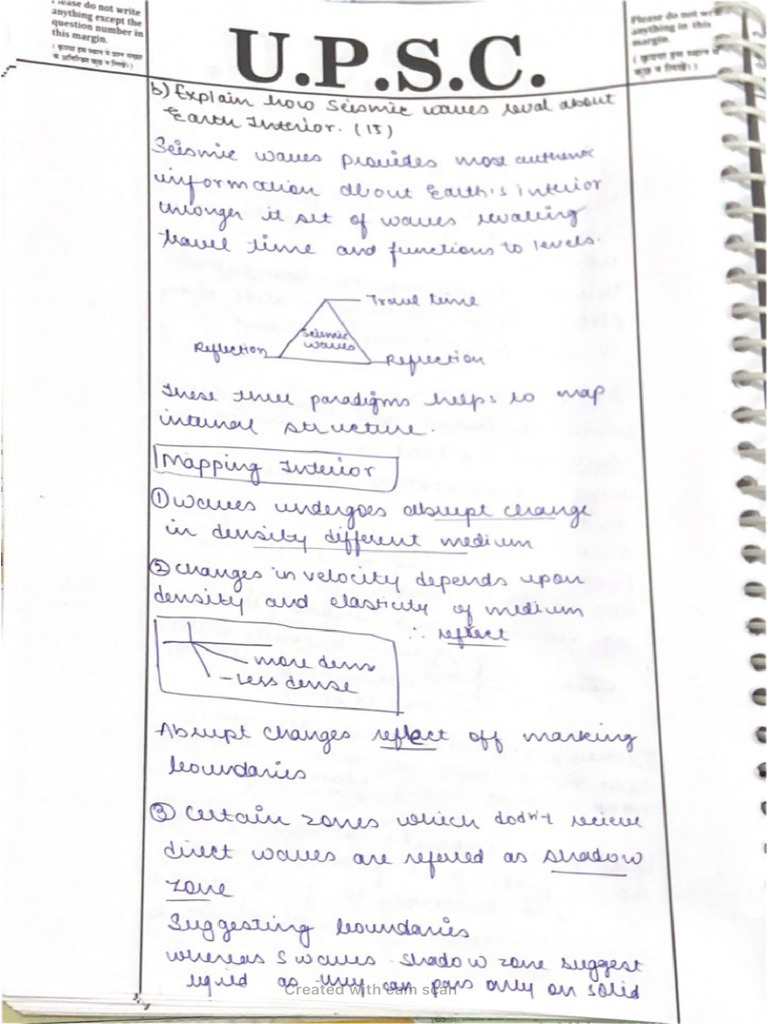 Please do not write
anything except the
question number in
this margin.
Please do not write
anything in this
margin.
U.P.S.C.
b) Explain how Seismic waves reval about
Earth Interior. (15)
Seismic waves provides most authentic
information about Earth's interior
it set of waves revealing
travel time and functions to levels.
Travel time
Seismic
waves
Reflection
Reflection
These three paradigms helps to map
internal structure.
Mapping Interior
① waves undergoes abrupt change
in density different medium
② changes in velocity depends upon
density and elasticity of medium
∴ reflect
more dens
less dense
Abrupt changes reflect off marking
boundaries
③ Certain zones which dodn't recieve
direct waves are refered as shadow
zone
Suggesting boundaries
whereas S waves shadow zone suggest
liquid as they can pass only on solid
Created with cam scan